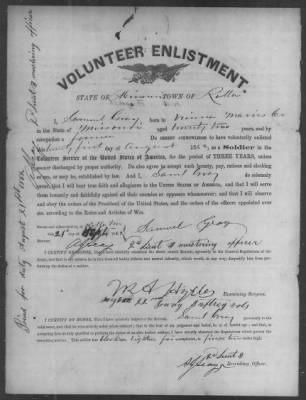 VOLUNTEER ENLISTMENT
STATE OF Missouri TOWN OF Rolla
I, Samuel Gray, born in Vienna Maries Co
in the State of Missouri aged twenty two years, and by
occupation a Do hereby acknowledge to have voluntarily enlisted
twenty first day of August 186 , as a Soldier in the
Volunteer Service of the United States of America, for the period of THREE YEARS, unless
sooner discharged by proper authority: Do also agree to accept such bounty, pay, rations and clothing
as are, or may be, established by law. And I, Saml Gray do solemnly
swear, that I will bear true faith and allegiance to the United States of America, and that I will serve
them honestly and faithfully against all their enemies or opposers whomsoever; and that I will observe
and obey the orders of the President of the United States, and the orders of the officers appointed over
me, according to the Rules and Articles of War.
Sworn and subscribed to, at
this 21st day of Samuel Gray
2d Lieut & mustering officer
I CERTIFY ON HONOR, That I have carefully examined the above named Volunteer, agreeably to the General Regulations of the
Army, and that in my opinion he is free from all bodily defects and mental infirmity, which would, in any way, disqualify him from per-
forming the duties of a soldier.
Examining Surgeon.
I CERTIFY ON HONOR, That I have minutely inspected the Volunteer, Saml Gray previously to his
enlistment, and that he was entirely sober when enlisted; that to the best of my judgment and belief, he is of lawful age; and that, in
accepting him as duly qualified to perform the duties of an able-bodied soldier, I have strictly observed the Regulations which govern the
recruiting service. This soldier has
2d Lieut &
Recruiting Officer.
for duty August 21st 1862
2d Lieut & mustering officer